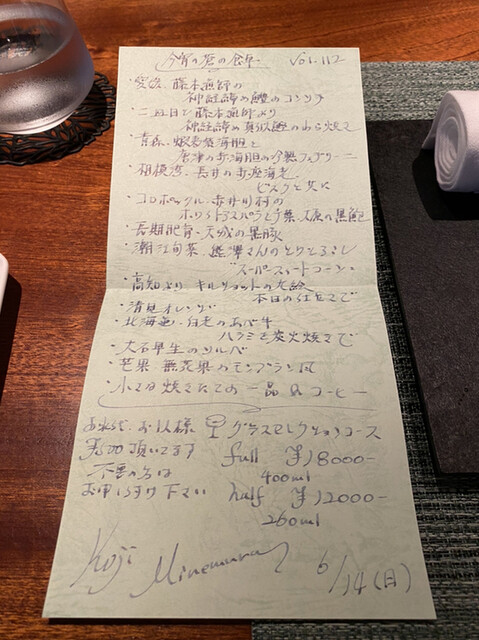 今宵の蒼の食卓 Vol.112
・愛媛 藤本漁師の
神経〆め鰹のコンフィ
・三班目で藤本漁師より
神経〆め のわら焼き
・青森 海胆と
唐津の赤海胆の冷製フェデリーニ
・相模湾 長井の赤座海老
ビスクと共に
・コロポックル 赤井川村の
ホワイトアスパラと 黒鮑
・長期肥育 天城の黒豚
・潮江旬菜 熊澤さんのとりとるらし
"スーパースイートコーン"
・高知より キルショットの
本日の仕立てで
・清見オレンジ
・北海道 白老のあべ牛
ハラミを炭火焼きで
・大石早生のソルベ
・芒果 無花果のモンブラン風
・小さな焼きたての一品 & コーヒー
お1人様 グラスセレクションコース
¥ 頂いてます full ¥18000-
不要の方は 400ml
お申しつけ下さい half ¥12000-
260ml
Koji Minemura 6/14(日)